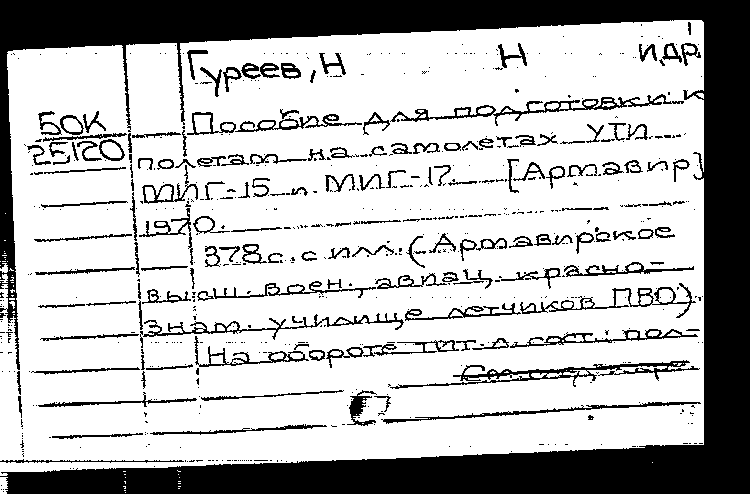 Гуреев, Н Н и др
БОК Пособие для подготовки к
25120 полетам на самолетах УТИ
МИГ-15 и МИГ-17. [Армавир]
1970.
378с. с илл. (Армавирское
высш. воен., авиац. красно-
знам. училище летчиков ПВО).
На обороте тит. л. сост.: пол-
См. след. к-ра.